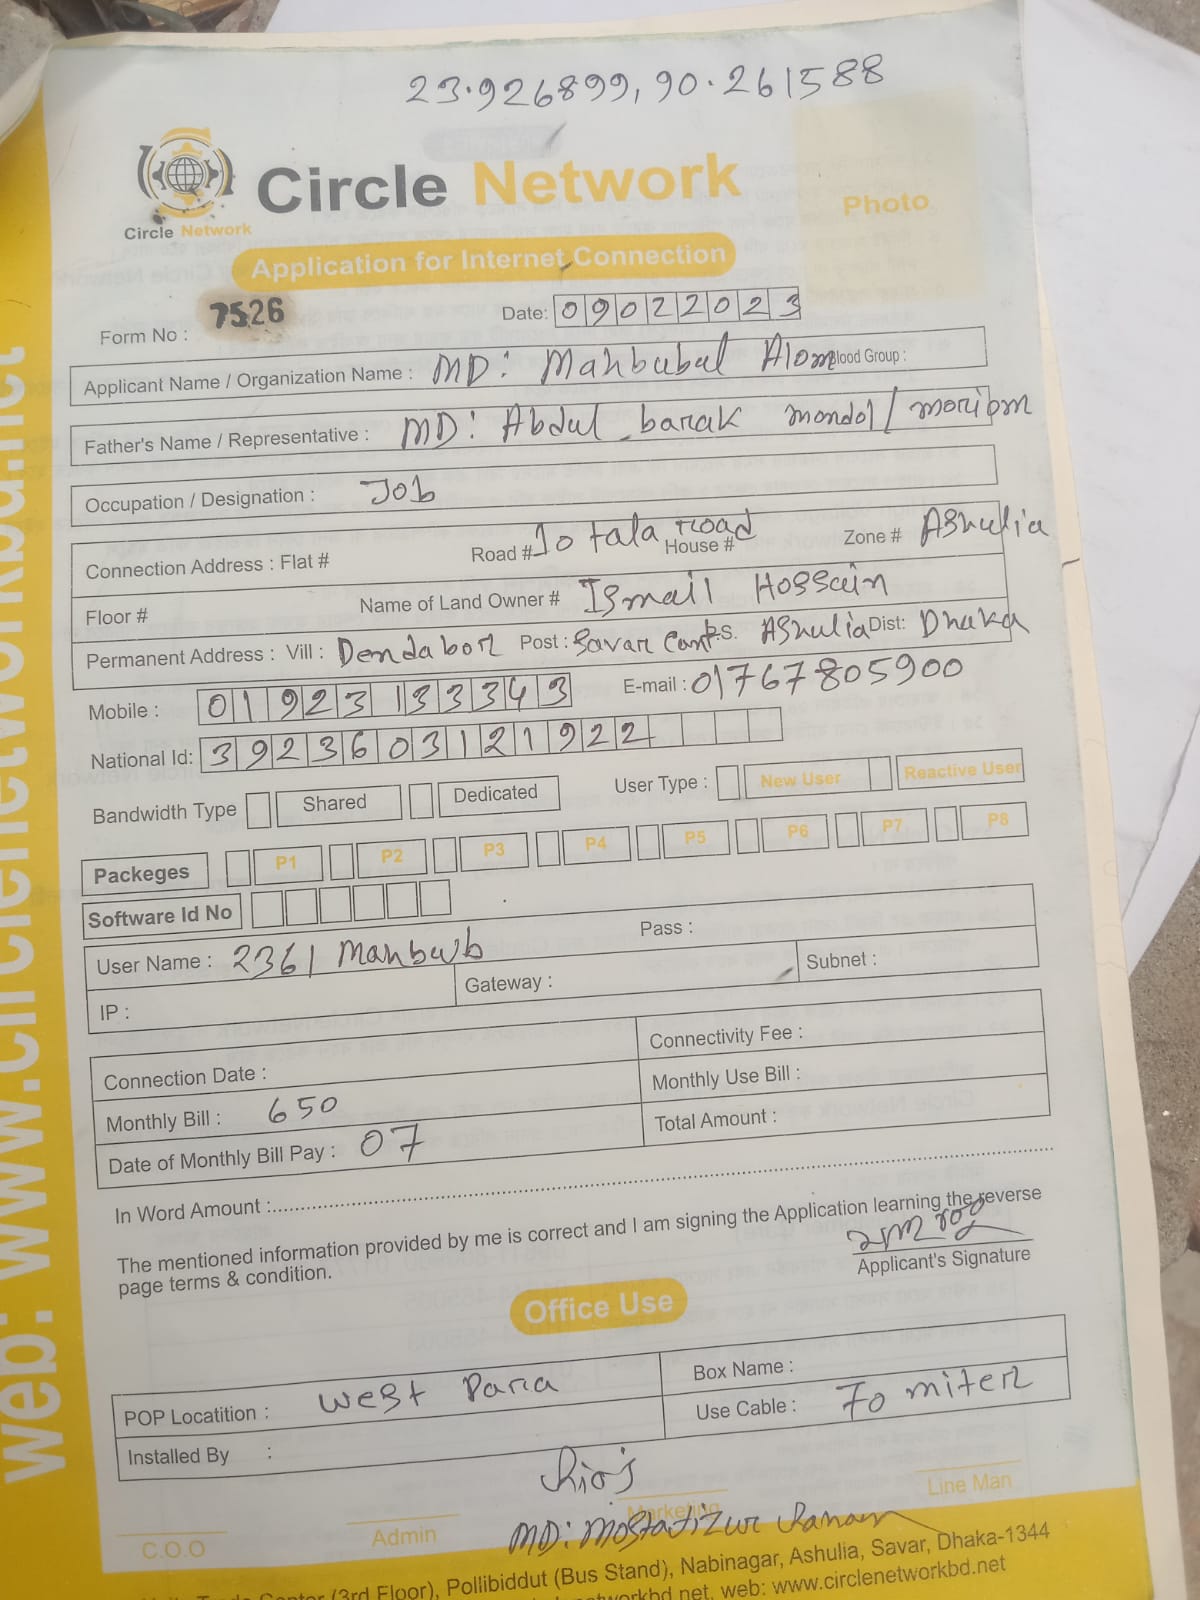 23.926899, 90.261588
Circle Network
Circle Network
Photo
Application for Internet Connection
Form No : 7526 Date: 09022023
Applicant Name / Organization Name : MD: Mahbubal Alom Blood Group :
Father's Name / Representative : MD: Abdul barak mondol / moriom
Occupation / Designation : Job
Connection Address : Flat # Road # 10 tala road House # Zone # Ashulia
Floor # Name of Land Owner # Ismail Hossain
Permanent Address : Vill : Dendabor Post : Savar Cant P.S. Ashulia Dist: Dhaka
Mobile : 01923133343 E-mail : 01767805900
National Id: 3923603121922
Bandwidth Type Shared Dedicated User Type : New User Reactive User
Packeges P1 P2 P3 P4 P5 P6 P7 P8
Software Id No
User Name : 2361 Mahbub Pass :
IP : Gateway : Subnet :
Connection Date : Connectivity Fee :
Monthly Bill : 650 Monthly Use Bill :
Date of Monthly Bill Pay : 07 Total Amount :
In Word Amount :
The mentioned information provided by me is correct and I am signing the Application learning the reverse
page terms & condition.
Applicant's Signature
Office Use
POP Locatition : West Para Box Name :
Installed By : Use Cable : 70 miter
C.O.O Admin Marketing Line Man
MD: Mostafizur Rahman
(3rd Floor), Pollibiddut (Bus Stand), Nabinagar, Ashulia, Savar, Dhaka-1344
web: www.circlenetworkbd.net
web: www.circlenetworkbd.net